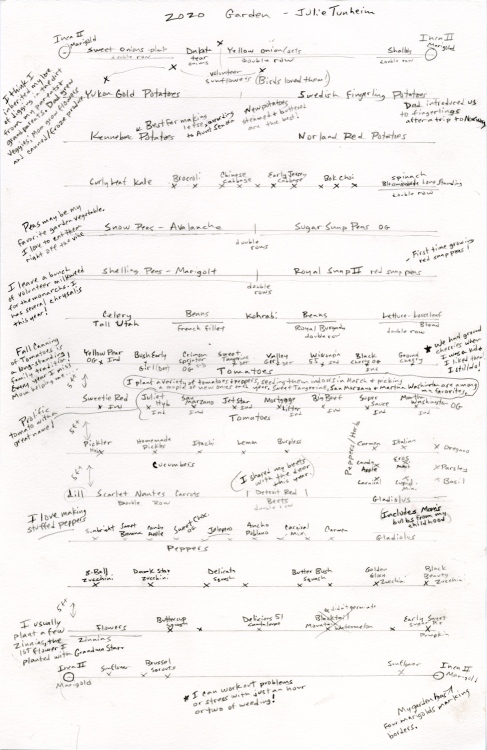 2020 Garden - Julie Tunheim
Inca II
Marigold
Sweet onions - plant
double row
Yellow onion/sets
double row
Shallots
double row
Inca II
Marigold
volunteer
sunflowers (Birds loved them!)
Yukon Gold Potatoes
Swedish Fingerling Potatoes
* Best for making
lefse, according
to Aunt
New potatoes
steamed & buttered
are the best!
Dad introduced us
to fingerlings
after a trip to Norway
Kennebec Potatoes
Norland Red Potatoes
I think I
inherited my love
of digging in the dirt
from my parents &
grandparents. Dad grew
veggies. Mom grew flowers
and canned/froze produce
Curly leaf Kale
Brocoli
Chinese
Cabbage
Early Jersey
Cabbage
Bok choi
spinach
Bloomsdale Long Standing
double row
Peas may be my
favorite garden vegetable.
I love to eat them
right off the vine
Snow Peas - Avalanche
double
rows
Sugar Snap Peas OG
First time growing
red snap peas!
Shelling Peas - Marigolt
double
rows
Royal Snap II red snap peas
I leave a bunch
of volunteer milkweed
for the monarchs. I
has several chrysalis
this year!
Celery
Tall Utah
Beans
French fillet
Kohrabi
Beans
Royal Burgundy
double row
Lettuce - looseleaf
Blend
double row
Fall Canning
of Tomatoes is
a long standing
family tradition.
Every year I miss
Mom helping me.
Yellow Pear
OG x Ind
Bush Early
Girl
Crimson
Sprinter
OG
Sweet
Tangerine
Det
Valley
Girl
Wisconsin
55
Black
Cherry
OG Ind
Ground
Cherry
We had ground
cherries when
I was a kid.
I liked them!
I still do!
Tomatoes
I plant a variety of tomatoes & peppers, seeding them indoors in March & picking
a couple of new ones each year. Sweet Tangerines, San Marzano & Martha Washington are among
my favorites.
Prolific
tomato with a
great name!
Sweetie Red
x Ind
Juliet
Hyb
Ind
San
Marzano
Ind
Jet Star
x Ind
Mortgage
x Lifter
Ind
Big Beef
x Ind
Super
Sauce
Ind
Martha
Washington
x OG
Ind
Tomatoes
5 Ft
Pickler
Hyb
Homemade
Pickles
Itachi
Lemon
Burpless
Cucumbers
Peppers/Herbs
Carmen
Italian
Candy
Apple
Eros
Mini
Carnival
Cupid
Mini
x Oregano
x Parsley
x Basil
Dill
Scarlet Nantes Carrots
Double Row
I shared my beets
with the deer
this year.
Detroit Red
Beets
double row
Gladiolus
Includes Mom's
bulbs from my
childhood
Gladiolus
I love making
stuffed peppers
Sunbright
Sweet
Banana
Candy
Apple
Sweet Choc.
OG
Jalapeno
Ancho
Poblano
Carnival
Mix
Carmen
Peppers
8-Ball
Zucchini
Dark Star
zucchini
Delicata
Squash
Butter Bush
Squash
Golden
Glaze
x Zucchini
Black
Beauty
x Zucchini
5 Ft
I usually
plant a few
Zinnias, the
1st flower I
planted with Grandma Starr
Flowers
Zinnias
Buttercup
Squash
Delicious 51
Cantaloupe
didn't germinate
Blacktail
Mountain
Watermelon
Early Sweet
Sugar Pie
Pumpkin
Inca II
Marigold
Sunflower
Brussel
Sprouts
Sunflower
Inca II
Marigold
* I can work out problems
or stress with just an hour
or two of weeding!
My garden has
four marigolds marking
borders.